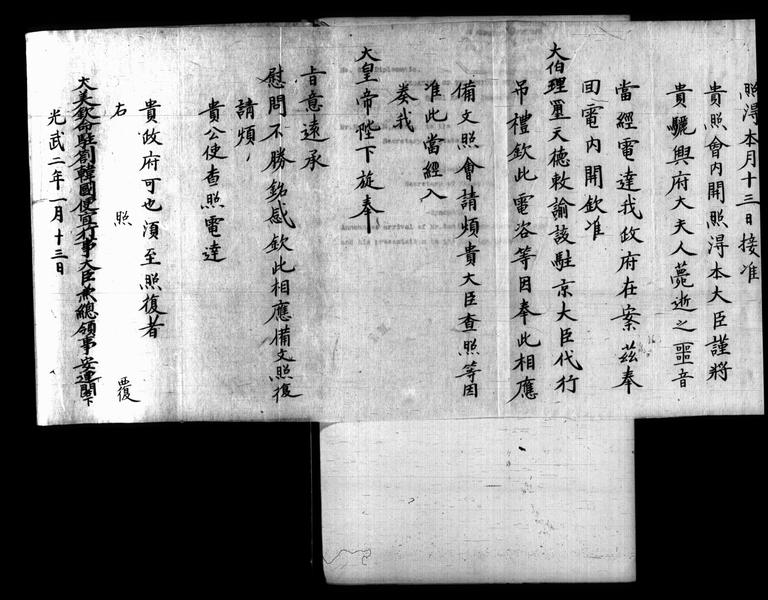 照淂本月十三日接准
貴照會內開照淂本大臣謹將
貴驪興府大夫人薨逝之噩音
當經電達我政府在案茲奉
回電內開欽准
大伯理璽天德敕諭該駐京大臣代行
吊禮欽此電咨等因奉此相應
備文照會請煩貴大臣查照等因
准此當經入
奏我
大皇帝陛下旋奉
旨意遠承
慰問不勝銘感欽此相應備文照復
請煩
貴公使查照電達
貴政府可也須至照復者
右 照 覆
大美欽命駐劄韓國便宜行事大臣兼總領事安連閣下
光武二年一月十三日